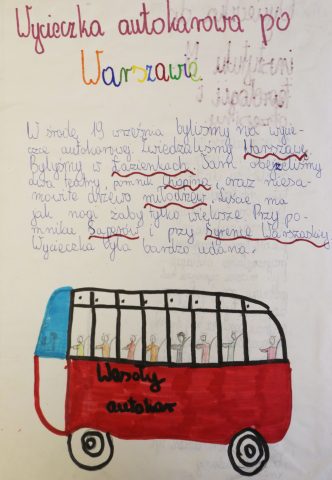 Wycieczka autokarowa po
Warszawie
W środę 19 września byliśmy na wycie-
czce autokarowej. Zwiedzaliśmy Warszawę.
Byliśmy w Łazienkach. Tam obejrzeliśmy
dwa teatry, pomnik Chopina, oraz niesa-
mowite drzewo miłorzęw. Liście ma
jak nogi żaby tylko większe. Przy po-
mniku Saperów i przy Syrence Warszaskiej
Wycieczka była bardzo udana.
Wesoły
autokar